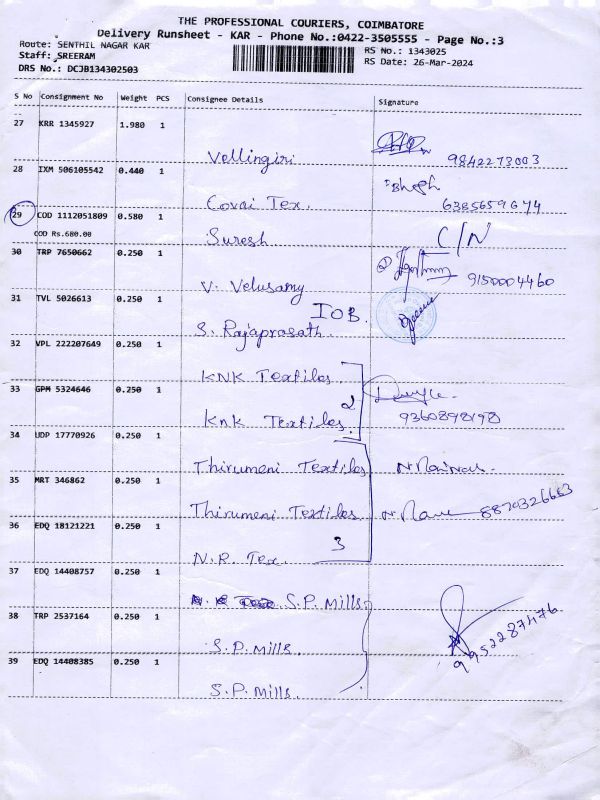 THE PROFESSIONAL COURIERS, COIMBATORE
Delivery Runsheet - KAR - Phone No.:0422-3505555 - Page No.:3
Route: SENTHIL NAGAR KAR
RS No.: 1343025
Staff: SREERAM
RS Date: 26-Mar-2024
DRS No.: DCJB134302503
S No Consignment No Weight PCS Consignee Details Signature
27 KRR 1345927 1.980 1 Vellingiri 9842273003
28 IXM 506105542 0.440 1 Covai Tex. 6385659674
29 COD 1112051809 0.580 1 Suresh C/N
COD Rs.680.00
30 TRP 7650662 0.250 1 V. Velusamy 9150004460
31 TVL 5026613 0.250 1 S. Rajaprasath. IOB.
32 VPL 222207649 0.250 1 KNK Textiles
33 GPM 5324646 0.250 1 KNK Textiles. 2 9360898198
34 UDP 17770926 0.250 1 Thirumeni Textiles
35 MRT 346862 0.250 1 Thirumeni Textiles 8870326663
36 EDQ 18121221 0.250 1 N.R. Tex. 3
37 EDQ 14408757 0.250 1 S.P. Mills
38 TRP 2537164 0.250 1 S.P. Mills. 9952287476
39 EDQ 14408385 0.250 1 S.P. Mills.